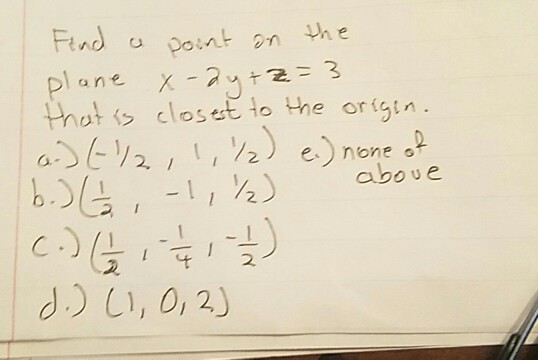 Find a point on the
plane x - 2y + z = 3
that is closest to the origin.
a.) (-1/2, 1, 1/2) e.) none of above
b.) (1/2, -1, 1/2)
c.) (1/2, -1/4, -1/2)
d.) (1, 0, 2)